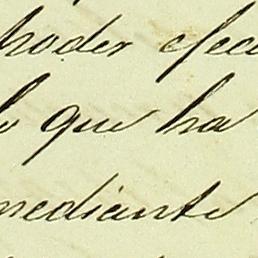 poder efec
lo que ha
mediante